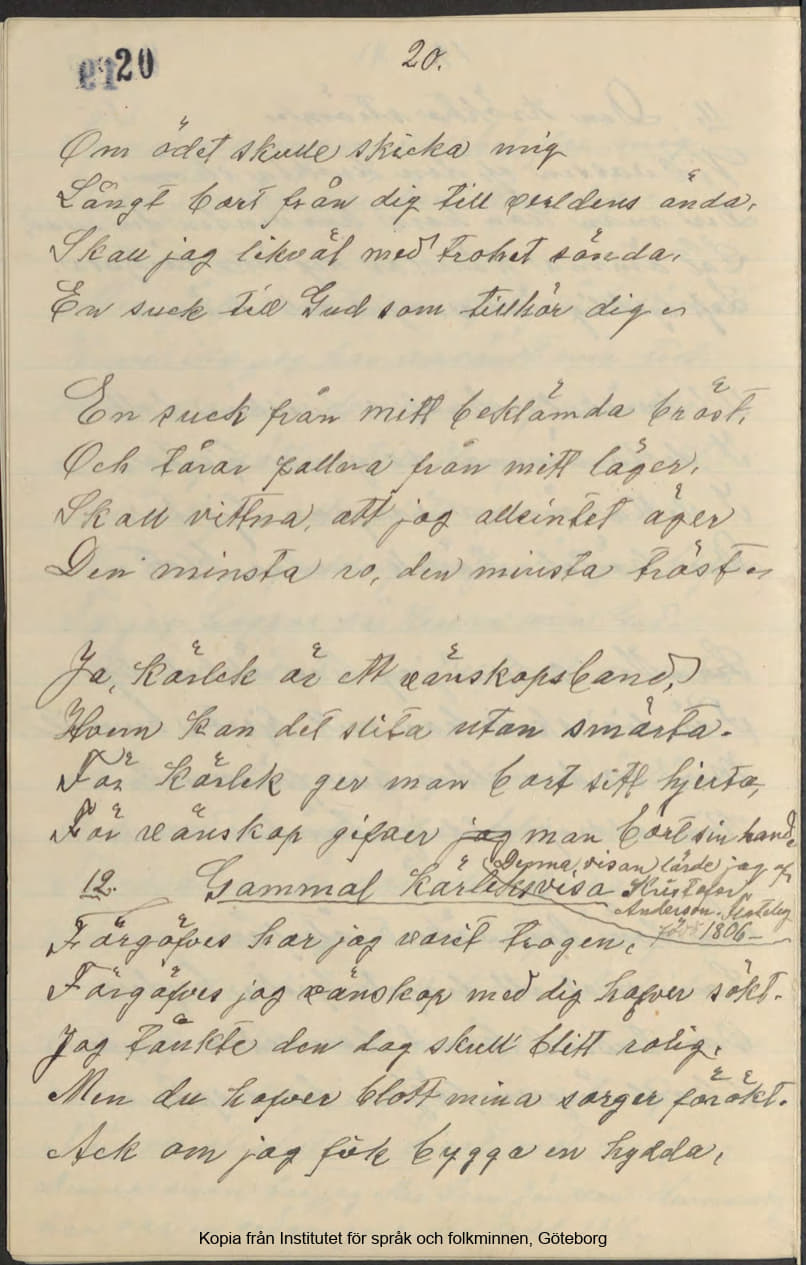 20
20.
Om ödet skulle skicka mig
Långt bort från dig till verldens ända,
Skall jag likväl med trohet sända,
En suck till Gud som tillhör dig
En suck från mitt beklämda bröst,
Och tårar pallra från mitt läger,
Skall vittna, att jag allsintet äger
Den minsta ro, den minsta tröst
Ja, kärlek är ett vänskapsband,
Hvem kan det slita utan smärta.
För kärlek ger man bort sitt hjerta,
För vänskap gifver jag man bort sin hand
12. Gammal kärleksvisa
Denna visan lärde jag af
Kristofor
Anderson.
född 1806
Förgöfves har jag varit trogen,
Förgöfves jag vänskap med dig hafver sökt.
Jag tänkte den dag skull' blitt rolig,
Men du hafver blott mina sorger förökt.
Ack om jag fik bygga en hydda,
Kopia från Institutet för språk och folkminnen, Göteborg